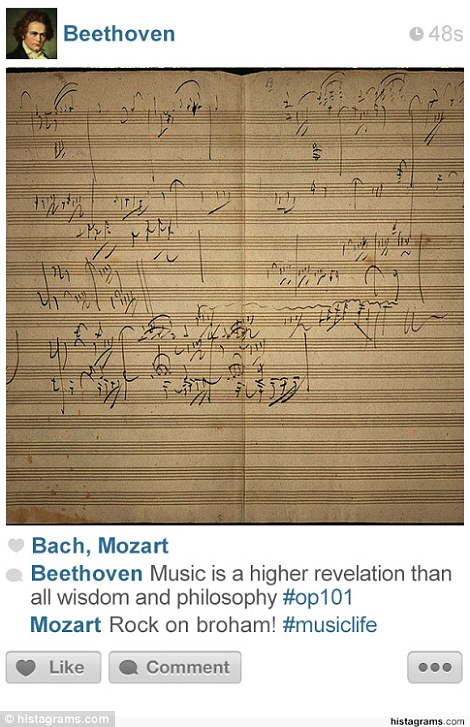 Beethoven
48s
Bach, Mozart
Beethoven Music is a higher revelation than
all wisdom and philosophy #op101
Mozart Rock on broham! #musiclife
Like
Comment
© histagrams.com
histagrams.com